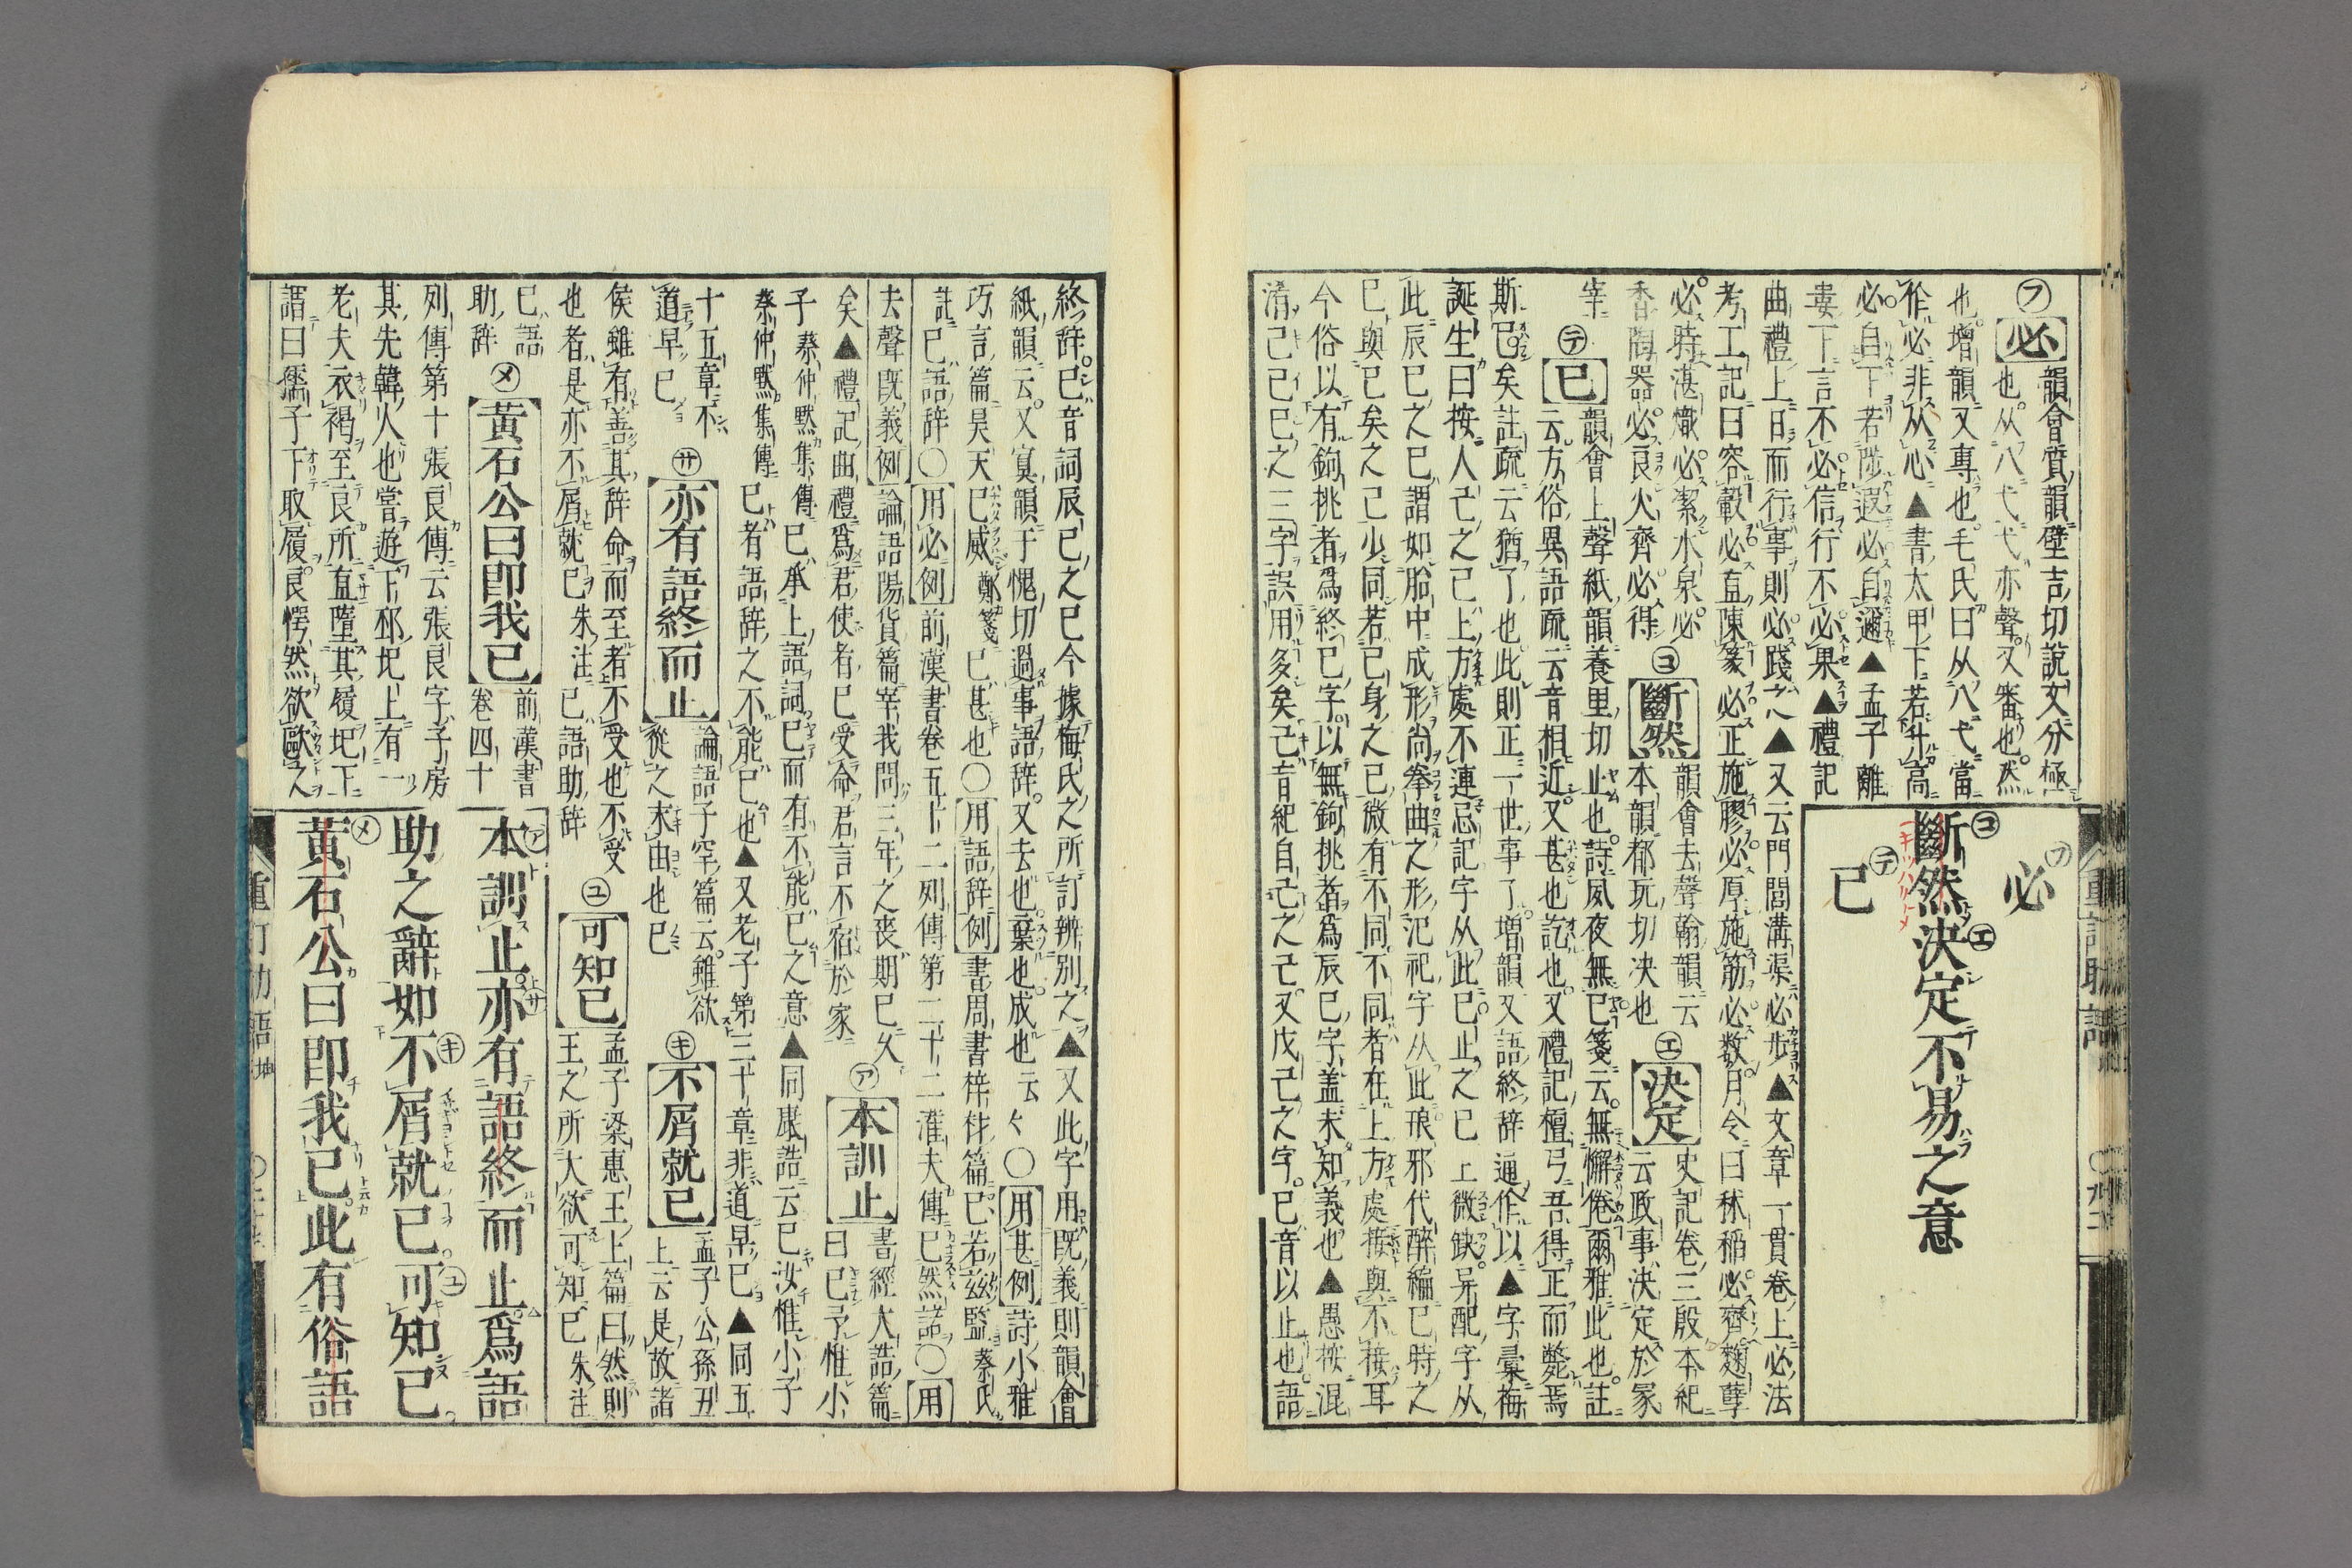 ㋫必 韻會質韻壁吉切說文分極
也从八弋弋亦聲又審也然
也增韻又專也毛氏曰从八弋當
作必非从心▲書太甲下若升高
必自下若陟遐必自邇▲孟子離
婁下言不必信行不必果▲禮記
曲禮上曰而行事則必踐之▲又云門閭溝渠必步▲文章一貫卷上必法
考工記曰容轂必直陳篆必正施膠必厚施筋必数月令曰秫稻必齊麹蘖
必時湛熾必潔水泉必
香陶器必良火齊必得
㋙斷然 韻會去聲翰韻云
本韻都玩切决也
㋓決定 史記卷三殷本紀
云政事決定於冢
宰
㋢已 韻會上聲紙韻養里切止也詩風夜無已箋云無懈倦爾雅此也註
云方俗異語疏云音相近又甚也訖也又禮記檀弓吾得正而斃焉
斯已矣註疏云猶了也此則正一世事了増韻又語終辞通作以▲字彙梅
誕生曰按人己之己上方處不連忌記字从此已止之已上微缺异配字从
此辰巳之巳謂如胎中成形尚拳曲之形汜祀字从此琅邪代醉編巳時之
巳與已矣之已少同若己身之己微有不同不同者在上方處接與不接耳
今俗以有鉤挑者爲終已字以無鉤挑者爲辰巳字盖未知義也▲愚按混
淆己已巳之三字誤用多矣己音紀自己之己又戊己之字已音以止也語
㋫必
㋙斷然㋓決定不易之意
㋢已
終辞巳音詞辰巳之巳今據梅氏之所訂辨別之▲又此字用既義則韻會
紙韻云又寘韻于愧切過事語辞又去也棄也成也云々〇用甚例詩小雅
巧言篇昊天已威鄭箋已甚也〇用語辞例書周書梓材篇已若茲監蔡氏
註已語辞〇用必例前漢書卷五十二列傳第二十二灌夫傳已然諾〇用
去聲既義例論語陽貨篇宰我問三年之喪期已久
矣▲禮記曲禮爲君使者已受命君言不宿於家
㋐本訓止 書經大誥篇
曰已予惟小
子蔡仲默集傳已承上語詞已而有不能已之意▲同康誥云已汝惟小子
蔡仲默集傳已者語辞之不能已也▲又老子第三十章非道早已▲同五
十五章不
道早已
㋚亦有語終而止 論語子罕篇云雖欲
從之末由也已
㋖不屑就已 孟子公孫丑
上云是故諸
侯雖有善其辞命而至者不受也不受
也者是亦不屑就已朱注已語助辞
㋴可知已 孟子梁惠王上篇曰然則
王之所大欲可知已朱注
已語
助辞
㋱黄石公曰即我已 前漢書
卷四十
列傳第十張良傳云張良字子房
其先韓人也嘗遊下邳圯上有一
老夫衣褐至良所直墮其履圯下
謂曰孺子下取履良愕然欲歐之
㋐本訓止㋚亦有語終而止爲語
助之辭如不㋖屑就已可㋴知已
㋱黄石公曰即我已此有俗語